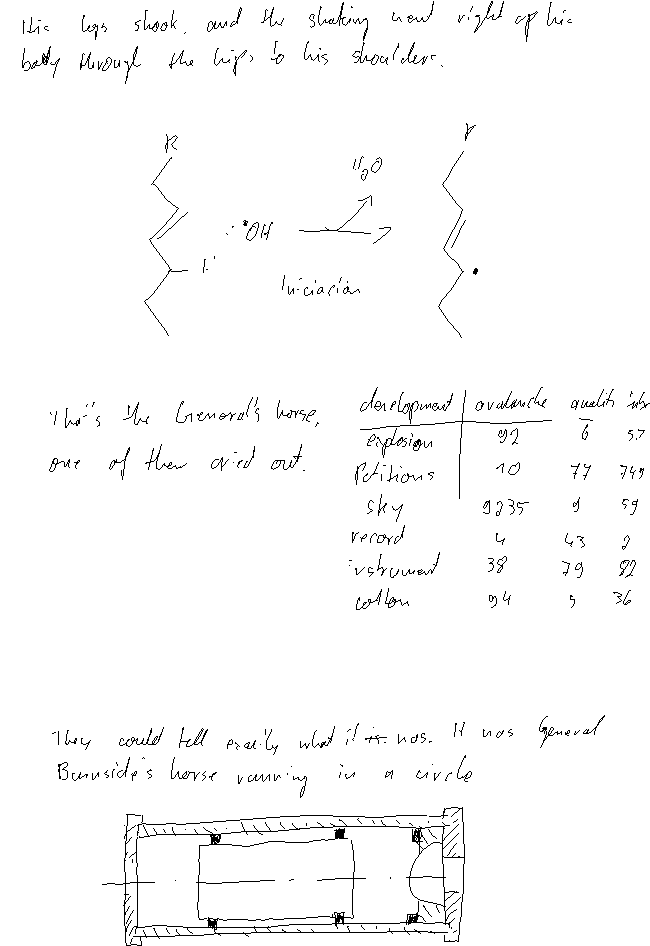 His legs shook, and the shaking went right up his
body through the hips to his shoulders.
R
R
H₂O
•OH
H
Iniciación
That's the General's horse,
one of them cried out.
development avalanche
explosion 92 6 57
Petitions 10 77 749
sky 9235 9 59
record 4 43 2
instrument 38 79 82
cotton 94 5 36
They could tell exactly what it was. It was General
Burnside's horse running in a circle